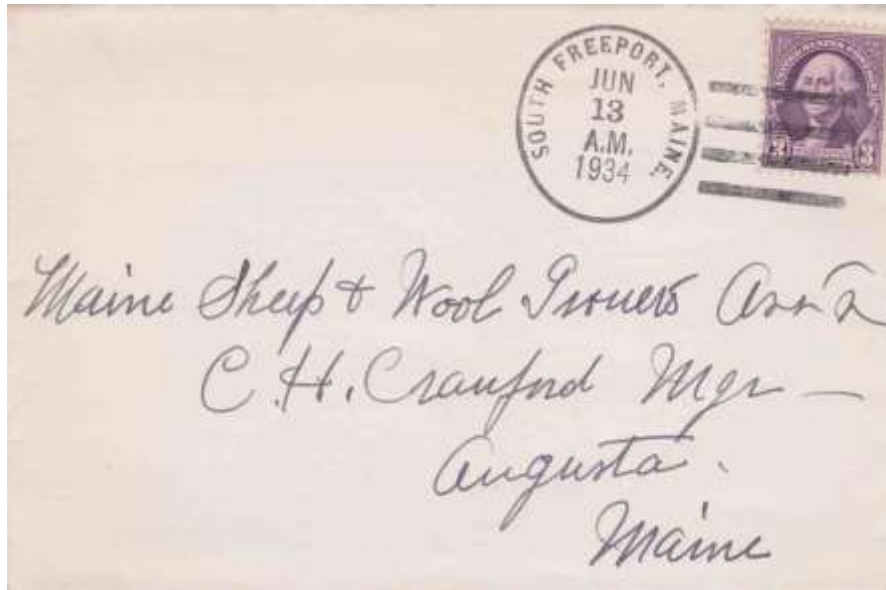 SOUTH FREEPORT, MAINE.
JUN
13
A.M.
1934
3 3
Maine Sheep & Wool Growers Ass'n
C. H. Crawford Mgr —
Augusta.
Maine